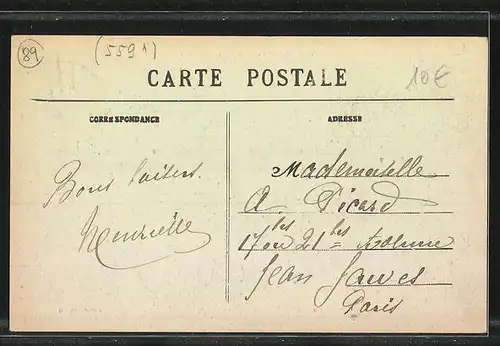 89
(559¹)
CARTE POSTALE
10€
CORRESPONDANCE
ADRESSE
Bons baisers.
Henriette
Mademoiselle
A. Picard
17 ou 21 bis
Jean Jaures
Paris